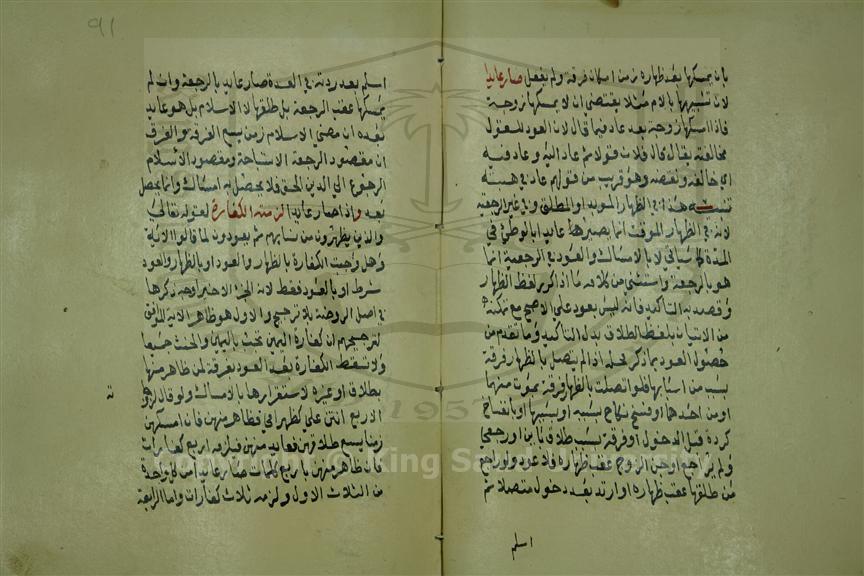 بان يمسكها بعد ظهاره زمن امكان فرقة ولم يفعل صار عايدا
لان تشبيهها بالام مثلا يقتضي ان لا يمسكها زوجة
فاذا امسكها زوجة بعد عاد فيما قال لان العود للقول
مخالفته يقال قال فلان قولا ثم عاد اليه وعاد فيه
اي خالفه ونقضه وهو قريب من قولهم عاد في هبته
تنبيه هذا في الظهار المويد او المطلق وفي غير الرجعية
لانه في الظهار الموقت انما يصير عايدا بالوطئ في
المدة كما سياتي لا بالامساك والعود في الرجعية انما
هو بالرجعة واستثنى من كلامه ما اذا كرر لفظ الظهار
وقصد به التاكيد فانه ليس بعود علي الاصح مع تمكنه
من الاتيان بلفظ الطلاق بدل التاكيد وما تقدم من
حصول العود بما ذكر محله اذا لم يتصل بالظهار فرقة
بسبب من اسبابها فلو اتصلت بالظهار فرقة بموت منهما
او من احدهما او فسخ نكاح بسببه او بسببها او بانفساخ
كردة قبل الدخول او فرقة بسبب طلاق باين او رجعي
ولم يراجع او جن الزوج عقب ظهاره فلا عود ولو راجع
من طلقها عقب ظهاره او ارتد بعد دخول متصلا ثم
اسلم
91
اسلم بعد ردته في العدة صار عايدا بالرجعة وان لم
يمسكها عقب الرجعة بل طلقها لا الاسلام بل هو عايد
بعده ان مضي الاسلام زمن يسع الفرقة والفرق
ان مقصود الرجعة الاستباحة ومقصود الاسلام
الرجوع الي الدين الحق فلا يحصل به امساك وانما يحصل
بعده واذا صار عايدا لزمته الكفارة لقوله تعالي
والذين يظهرون من نسايهم ثم يعودون لما قالوا الاية
وهل وجبت الكفارة بالظهار والعود او بالظهار والعود
شرط او بالعود فقط لانه الجزء الاخير اوجه ذكرها
في اصل الروضة بلا ترجيح والاول هو ظاهر الاية الموافق
لترجيحهم ان كفارة اليمين تجب باليمين والحنث جميعا
ولا تسقط الكفارة بعد العود بفرقة لمن ظاهر منها
بطلاق او غيره لاستقرارها بالامساك ولو قال لزوجاته
الاربع انتن علي كظهر امي فظاهر منهن فان امسكهن
زمنا يسع طلاقهن فعايد منهن فيلزمه اربع كفارات
فان ظاهر منهن باربع كلمات صار عايدا من كل واحدة
من الثلاث الاول ولزمه ثلاث كفارات واما الرابعة
Copyright © King Saud University
1957